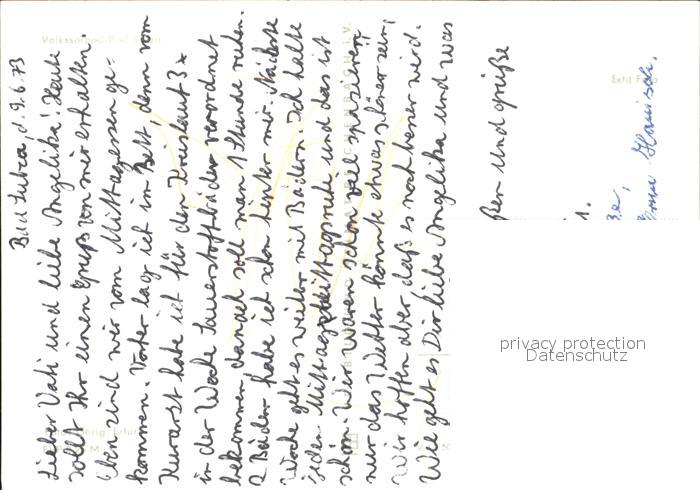 Bad Sulza, d. 9.6.73
Lieber Vati und liebe Angelika! Heute
sollt Ihr einen Gruß von mir erhalten.
Eben sind wir vom Mittagessen ge-
kommen. Vorher lag ich im Bett, denn vom
Kurarzt habe ich für den Kreislauf 3 x
in der Woche Sauerstoffbäder verordnet
bekommen, danach soll man 1 Stunde ruhen.
2 Bäder habe ich schon hinter mir. Nächste
Woche geht es weiter mit Bädern. Ich halte
jeden Mittag Mittagsruhe und das ist
schön. Wir waren schon viel spazieren,
nur das Wetter könnte etwas schöner sein,
Wir hoffen aber daß es noch besser wird.
Wie geht es Dir liebe Angelika und was
ßen und grüße
1.
Hanisch.
Volkssolbad Bad Sulza
Echt Foto
privacy protection
Datenschutz